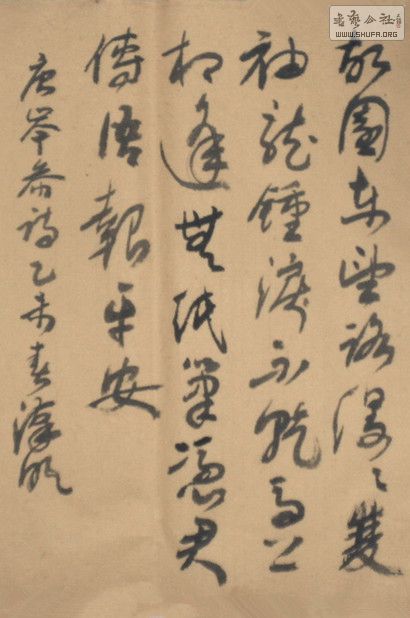 故園東望路漫々雙
袖龍鍾淚不乾馬上
相逢無紙筆憑君
傳語報平安
唐岑參詩乙未春
書藝公社
WWW.SHUFA.ORG